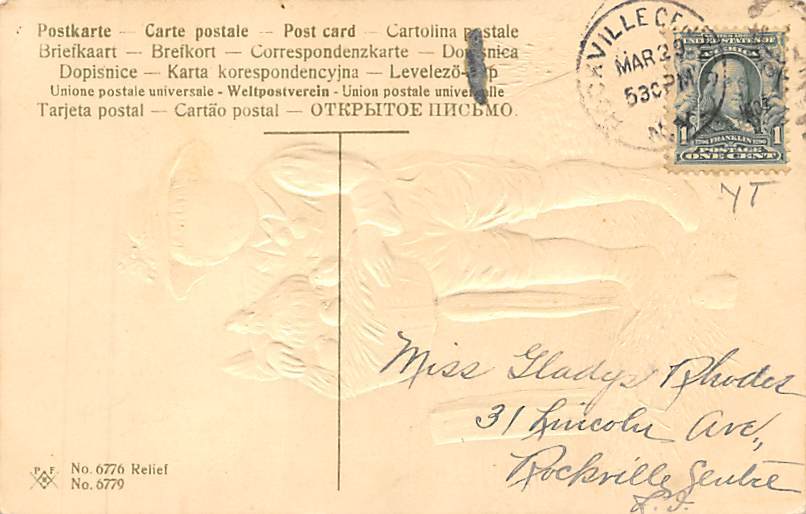 Postkarte — Carte postale — Post card — Cartolina postale
Briefkaart — Brefkort — Correspondenzkarte — Dopisnica
Dopisnice — Karta korespondencyjna — Levelező-lap
Unione postale universale - Weltpostverein - Union postale universelle
Tarjeta postal — Cartão postal — ОТКРЫТОЕ ПИСЬМО.
ROCKVILLE CENTRE
MAR 29
530PM
N.Y.
1 FRANKLIN 1
POSTAGE
ONE CENT
NY
Miss Gladys Rhodes
31 Lincoln Ave,
Rockville Centre
L.I.
P. F. No. 6776 Relief
No. 6779